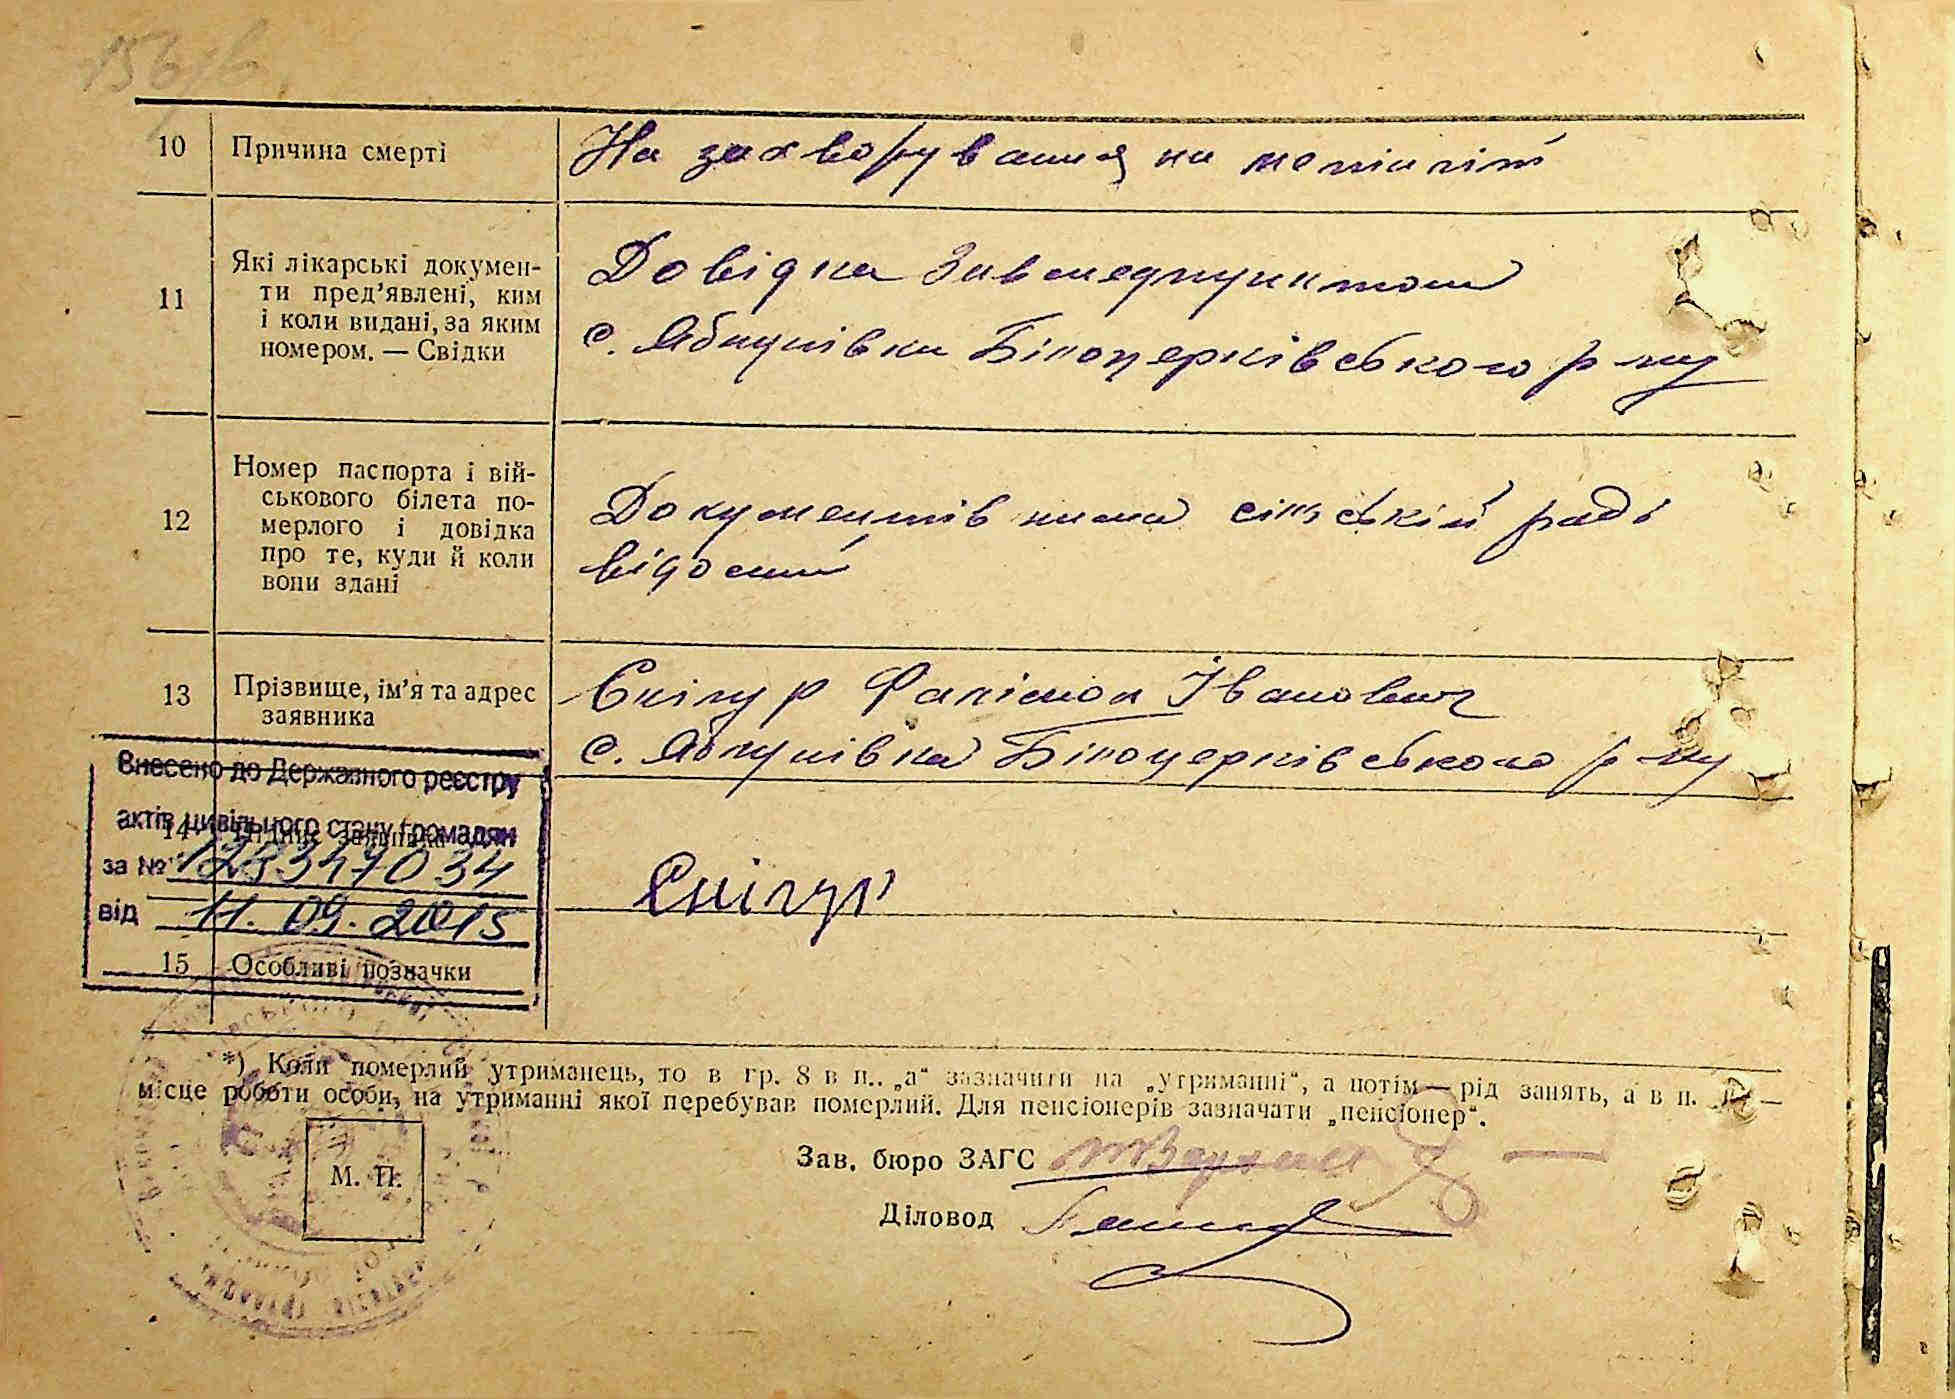 156/6
10 Причина смерті На захворування на менінгіт
11 Які лікарські докумен-
ти пред'явлені, ким
і коли видані, за яким
номером. — Свідки
Довідка Завмедпунктом
с. Яблунівки Білоцерківського р-ну
12 Номер паспорта і вій-
ськового білета по-
мерлого і довідка
про те, куди й коли
вони здані
Документів нима сільській раді
відомий
13 Прізвище, ім'я та адрес
заявника
Снігур Іванович
с. Яблунівка Білоцерківського р-ну
Внесено до Державного реєстру
актів цивільного стану громадян
14 Підпис заявника
за №
від 11.09.2015
Снігур
15 Особливі позначки
*) Коли померлий утриманець, то в гр. 8 в п. „а“ зазначити на „утриманні“, а потім — рід занять, а в п. —
місце роботи особи, на утриманні якої перебував померлий. Для пенсіонерів зазначати „пенсіонер“.
Зав. бюро ЗАГС
М. П.
Діловод